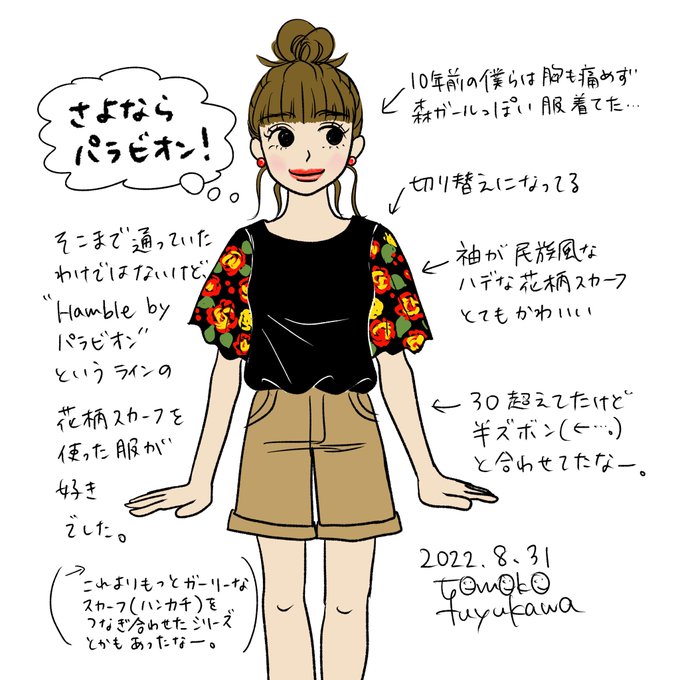 さよなら
パラビオン!
10年前の僕らは胸も痛めず
森ガールっぽい服着てた…
切り替えになってる
袖が民族風な
ハデな花柄スカーフ
とてもかわいい
30超えてたけど
半ズボン(←…。)
と合わせてたなー。
そこまで通っていた
わけではないけど、
"Hamble by
パラビオン"
というラインの
花柄スカーフを
使った服が
好き
でした。
これよりもっとガーリーな
スカーフ(ハンカチ)を
つなぎ合わせたシリーズ
とかもあったなー。
2022.8.31
tomoko
fuyukawa